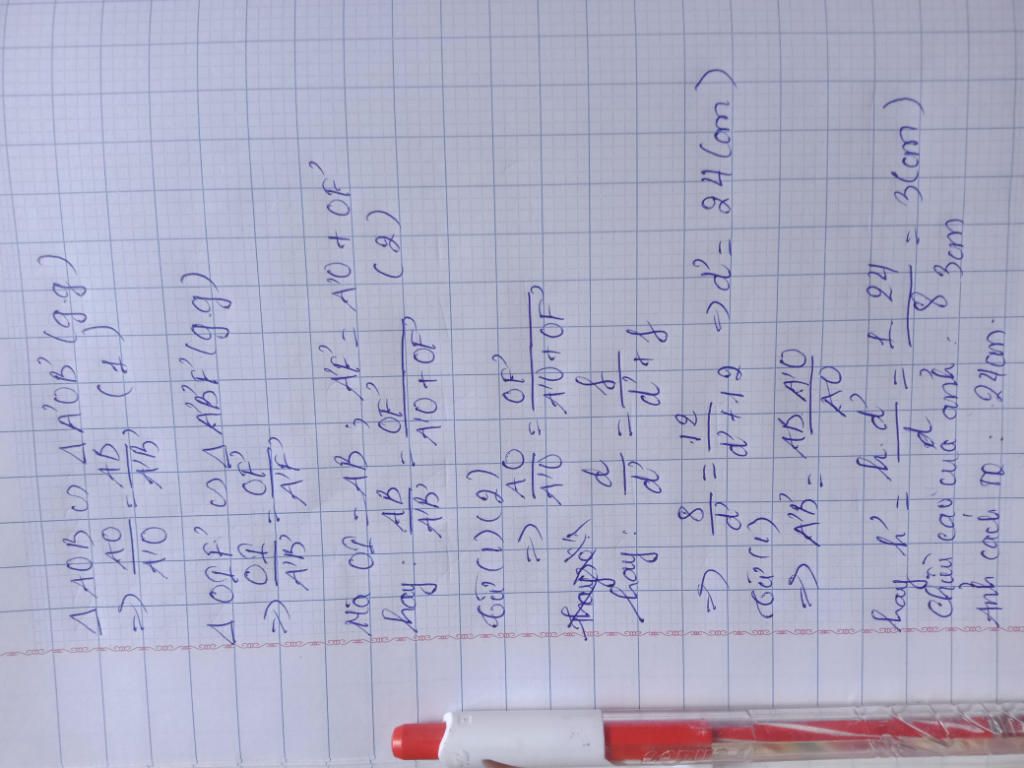 Δ AOB ∽ Δ A'OB' (g.g)
=> AO/A'O = AB/A'B' (1)
Δ OIF' ∽ Δ A'B'F' (g.g)
=> OI/A'B' = OF'/A'F'
Mà OI = AB ; A'F' = A'O + OF'
hay : AB/A'B' = OF'/A'O + OF' (2)
Từ (1) (2)
=> AO/A'O = OF'/A'O + OF'
hay : d/d' = f/d' + f
=> 8/d' = 12/d' + 12 => d' = 24 (cm)
Từ (1)
=> A'B' = AB.A'O/AO
hay h' = h.d'/d = 1.24/8 = 3 (cm)
Chiều cao của ảnh : 3cm
Ảnh cách TK : 24cm.